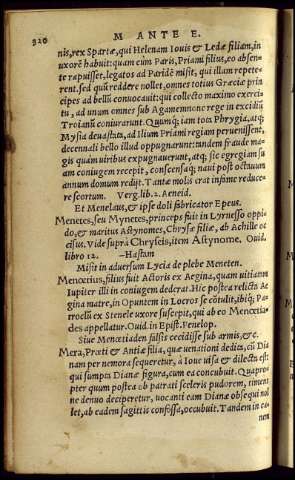 320 M ANTE E.
nis, rex Spartæ, qui Helenam Iouis & Ledæ filiam, in
uxorē habuit: quam cùm Paris, Priami filius, eo absen-
te rapuisset, legatos ad Paridē misit, qui illam repete-
rent. sed quū reddere nollet, omnes totius Græciæ prin
cipes ad bellū conuocauit: qui collecto maximo exerci-
tu, ad unum omnes sub Agamemnone rege in excidiū
Troianū coniurarunt. Quumq; iam tota Phrygia, atq;
Mysia deuastata, ad Ilium Priami regiam peruenissent,
decennali bello illud oppugnarunt: tandem fraude ma-
gis quàm uiribus expugnauerunt, atq; sic egregiam su
am coniugem recepit, conscensaq; naui post octauum
annum domum redijt. Tantæ molis erat infame reduce-
re scortum. Verg. lib. 2. Aeneid.
Et Menelaus, & ipse doli fabricator Epeus.
Menetes, seu Mynetes, princeps fuit in Lyrnesso oppi-
do, & maritus Astynomes, Chrysæ filiæ, ab Achille oc
cisus. Vide suprà Chryseis, item Astynome. Ouid.
libro 12. —Hastam
Misit in aduersum Lycia de plebe Meneten.
Menœtius, filius fuit Actoris ex Aegina, quam uitiatam
Iupiter illi in coniugem dederat. Hic postea relicta Ae
gina matre, in Opuntem in Locros se cōtulit, ibiq; Pa-
troclū ex Stenele uxore suscepit, qui ab eo Menœtia-
des appellatur. Ouid. in Epist. Penelop.
Siue Menœtiaden falsis cecidisse sub armis, &c.
Mera, Præti & Antiæ filia, quæ uenationi dedita, cū Dia
nam per nemora sequeretur, à Ioue uisa & dilecta est
qui sumpta Dianæ figura, cum ea concubuit. Quapro-
pter quum postea ob patrati sceleris pudorem, timens
ne denuo deciperetur, uocanti eam Dianæ obsequi nol
let, ab eadem sagittis confossa, occubuit. Tandem in ca-
nem